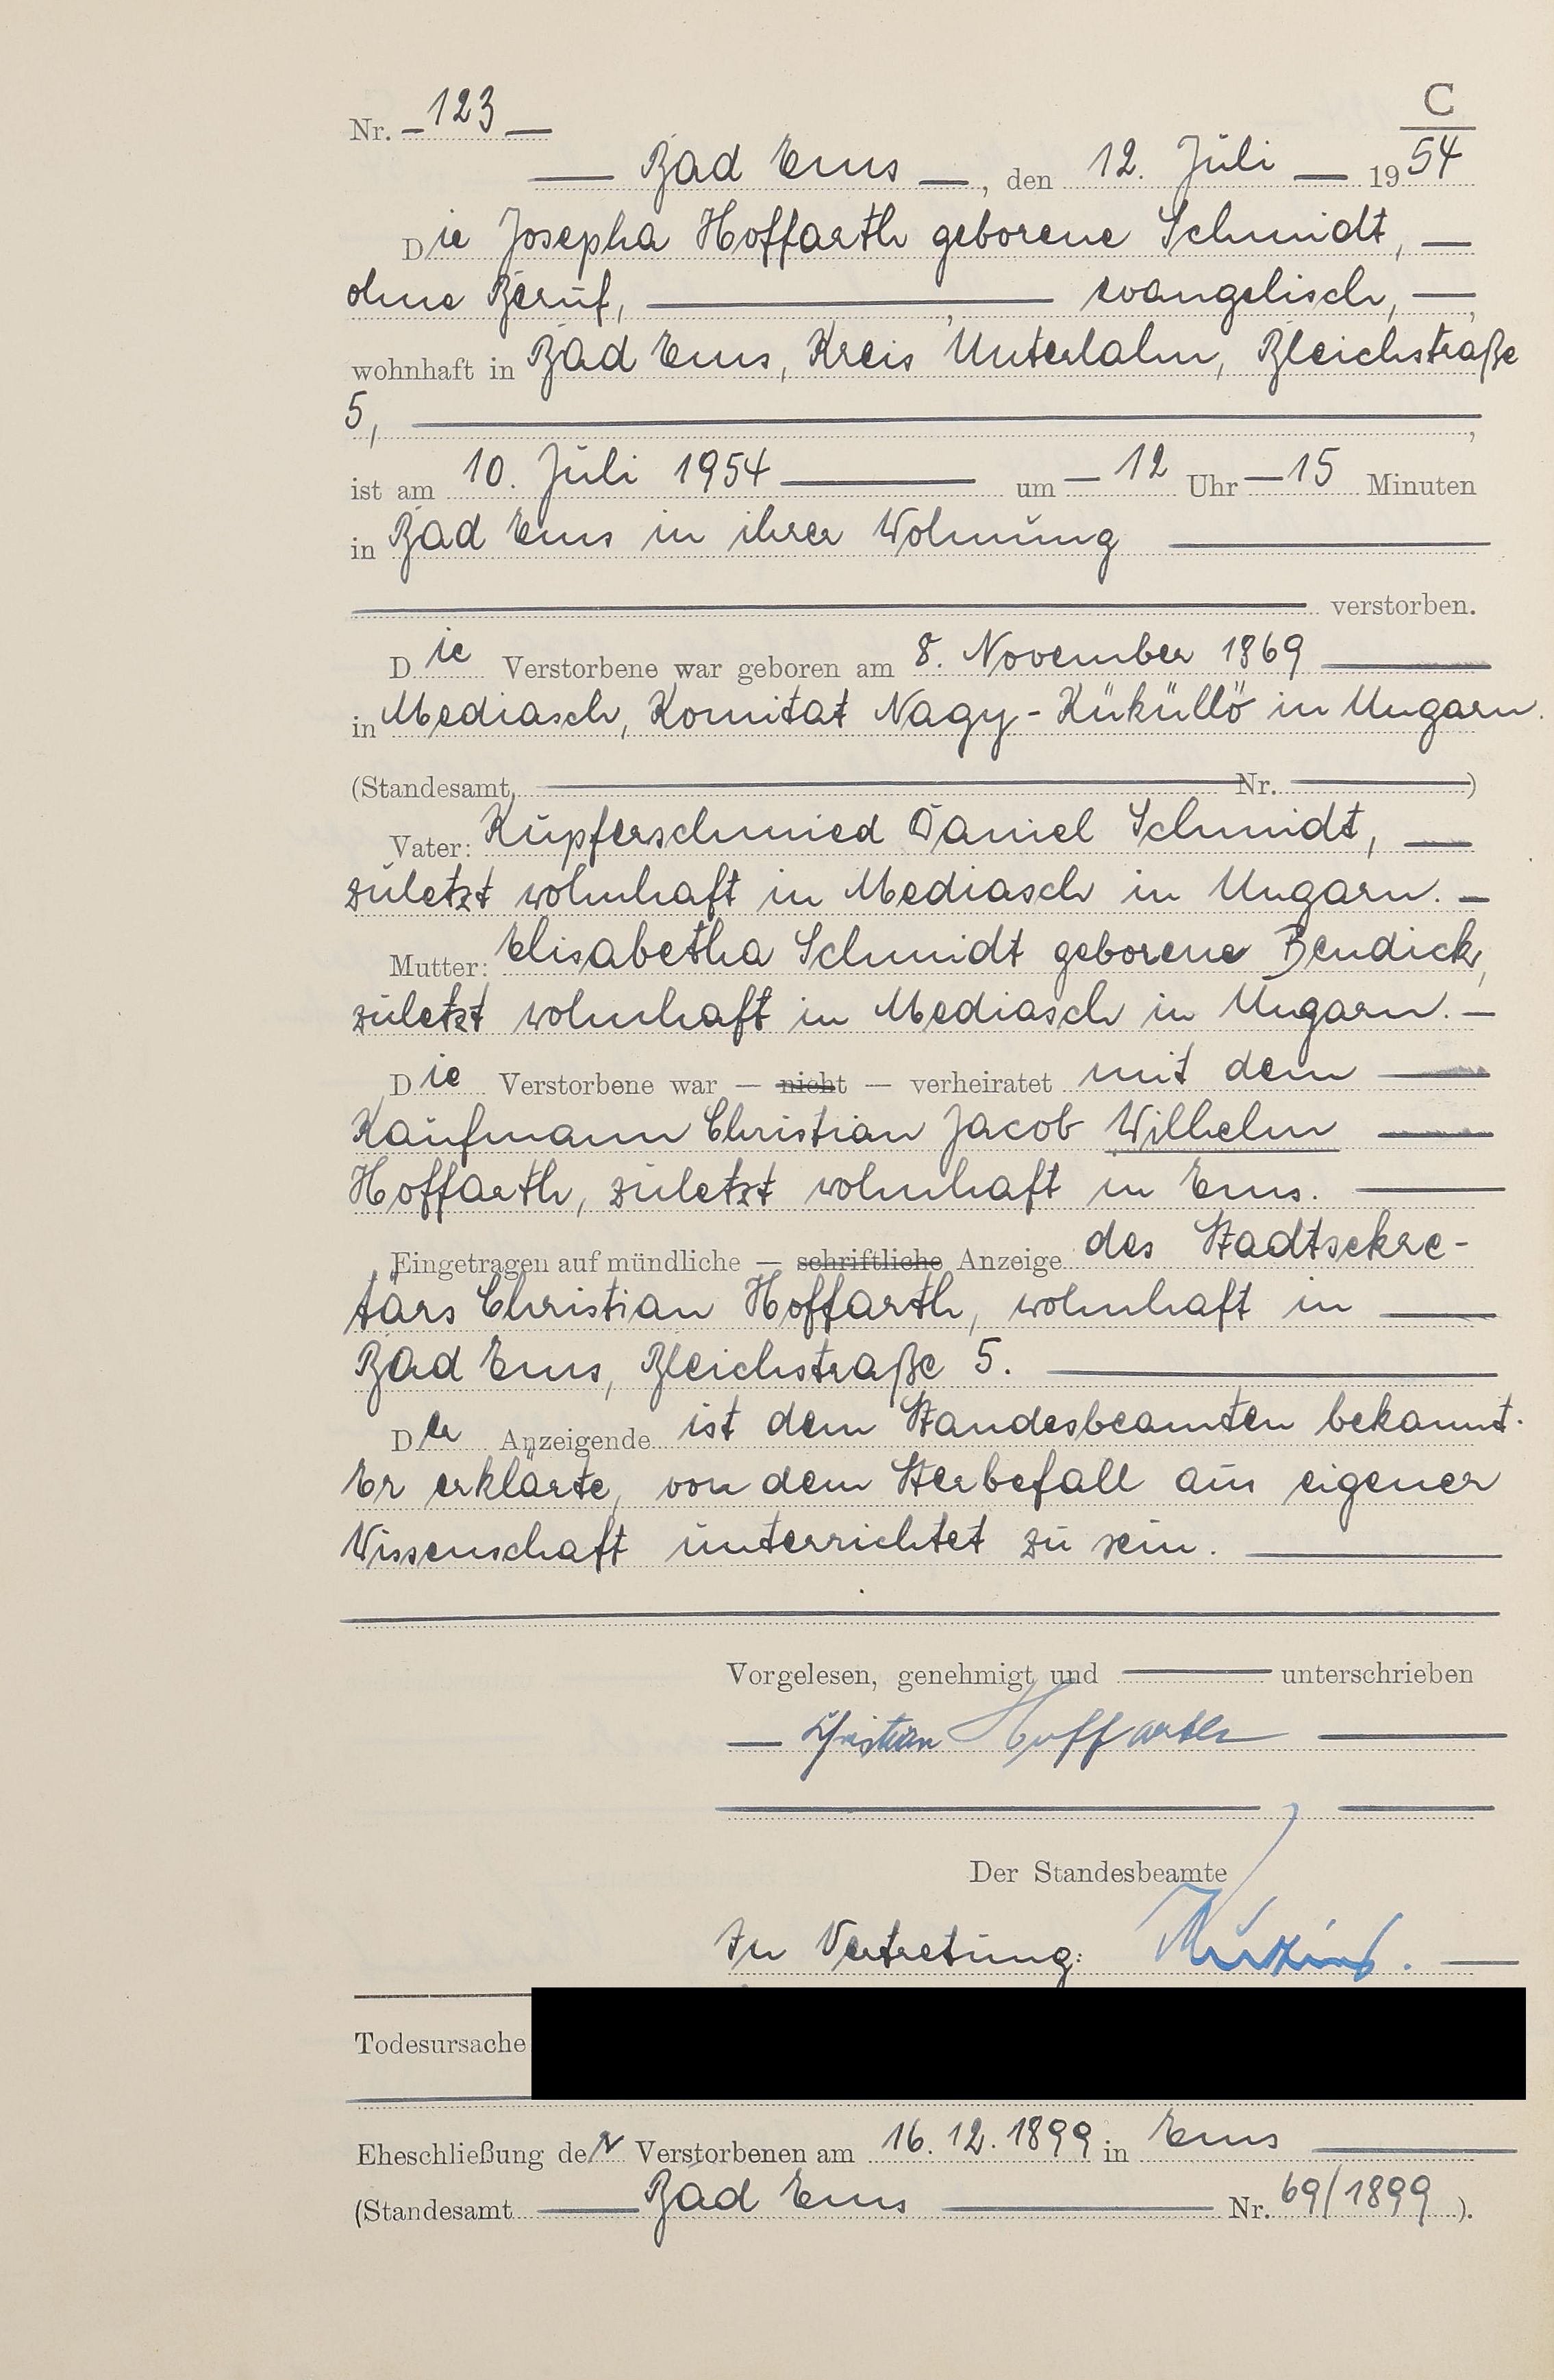 C
Nr. 123
Bad Ems, den 12. Juli 1954
Die Josepha Hoffarth geborene Schmidt,
ohne Beruf, evangelisch,
wohnhaft in Bad Ems, Kreis Unterlahn, Bleichstraße
5,
ist am 10. Juli 1954 um 12 Uhr 15 Minuten
in Bad Ems in ihrer Wohnung
verstorben.
Die Verstorbene war geboren am 8. November 1869
in Mediasch, Komitat Nagy-Küküllö in Ungarn.
(Standesamt Nr. )
Vater: Kupferschmied Daniel Schmidt,
zuletzt wohnhaft in Mediasch in Ungarn.
Mutter: Elisabetha Schmidt geborene Bendick,
zuletzt wohnhaft in Mediasch in Ungarn.
Die Verstorbene war — nicht — verheiratet mit dem
Kaufmann Christian Jacob Wilhelm
Hoffarth, zuletzt wohnhaft in Ems.
Eingetragen auf mündliche — schriftliche Anzeige des Stadtsekre-
tärs Christian Hoffarth, wohnhaft in
Bad Ems, Bleichstraße 5.
Der Anzeigende ist dem Standesbeamten bekannt.
Er erklärte, von dem Sterbefall aus eigener
Wissenschaft unterrichtet zu sein.
Vorgelesen, genehmigt und unterschrieben
Christian Hoffarth
Der Standesbeamte
In Vertretung:
Todesursache
Eheschließung der Verstorbenen am 16.12.1899 in Ems
(Standesamt Bad Ems Nr. 69/1899).